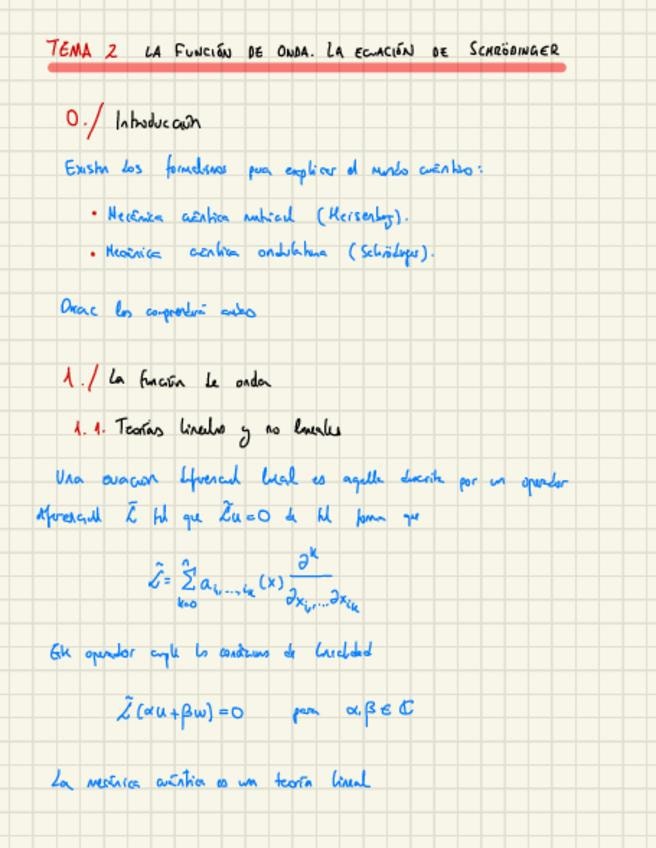 TEMA 2 LA FUNCIÓN DE ONDA. LA ECUACIÓN DE SCHRÖDINGER
0./ Introducción
Existen dos formalismos para explicar el mundo cuántico:
• Mecánica cuántica matricial (Heisenberg).
• Mecánica cuántica ondulatoria (Schrödinger).
Dirac los comprendería ambos
1./ La función de onda
1.1. Teorías lineales y no lineales
Una ecuación diferencial lineal es aquella descrita por un operador
diferencial L̃ tal que L̃u=0 de tal forma que
L̃ = ∑_{k=0}^{n} a_{i₁,...,i_k}(x) ∂^k / ∂x_{i₁}...∂x_{i_k}
Este operador cumple las condiciones de linealidad
L̃(αu+βw)=0 para α,β ∈ ℂ
La mecánica cuántica es una teoría lineal